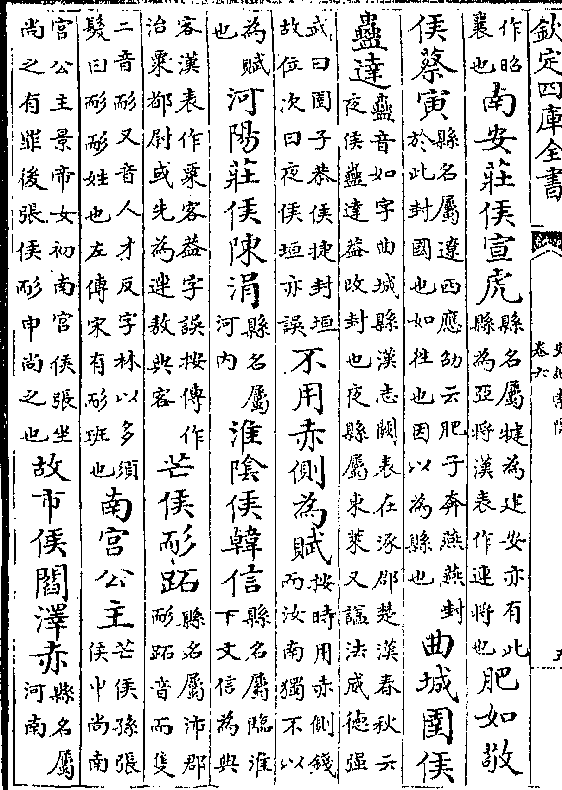 欽定四庫全書
史記索隱
卷六
五
作昭
襄也
南安莊侯宣虎
縣名屬犍為建安亦有此
縣為亞將漢表作連將也
肥如敬
侯蔡寅
縣名屬遼西應劭云肥子奔燕燕封
於此封國也如往也因以為縣也
曲城圉侯
蠱達
蠱音如字曲城縣漢志闕表在涿郡楚漢春秋云
夜侯蠱達蓋改封也夜縣屬東萊又謚法威德强
武曰圉子恭侯捷封垣
故位次曰夜侯垣亦誤
不用赤側為賦
按時用赤側錢
而汝南獨不以
為賦
也
河陽莊侯陳涓
縣名屬
河内
淮陰侯韓信
縣名屬臨淮
下文信為典
客漢表作粟客蓋字誤按傳作
治粟都尉或先為連敖典客
芒侯耏跖
縣名屬沛郡
耏跖音而隻
二音耏又音人才反字林以多須
髮曰耏耏姓也左傳宋有耏班也
南宮公主
芒侯孫張
侯申尚南
宮公主景帝女初南宮侯張坐
尚之有罪後張侯耏申尚之也
故市侯閻澤赤
縣名屬
河南